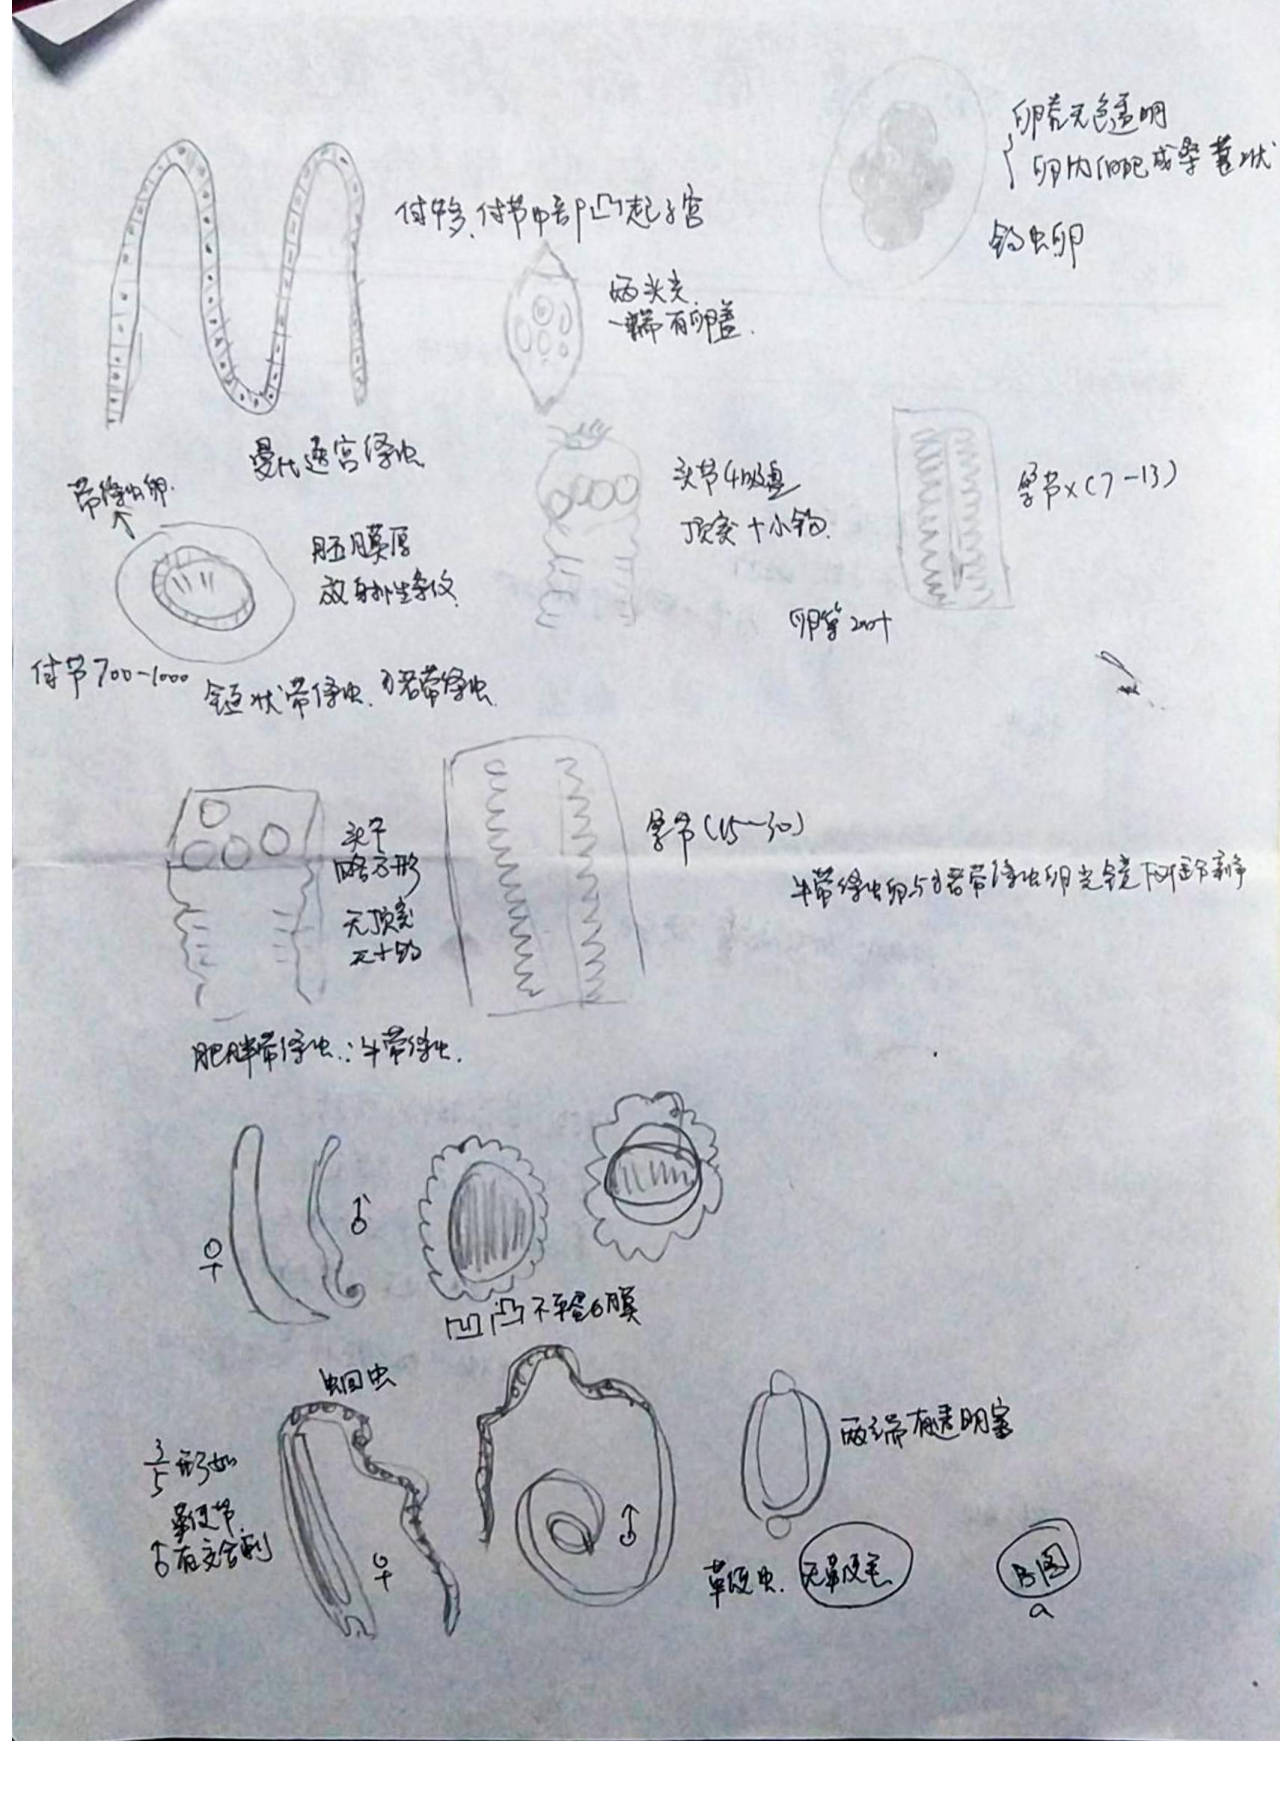 卵壳无色透明
卵内细胞成桑葚状
钩虫卵
体节多,体节中部凸起子宫
两头尖
一端有卵盖.
曼氏迭宫绦虫
带绦虫卵.
胚膜厚
放射性条纹.
头节4吸盘
顶突+小钩.
孕节×(7-13)
卵巢
体节700-1000
链状带绦虫.猪带绦虫.
头节
略方形
无顶突
无小钩
孕节(15-30)
牛带绦虫卵与猪带绦虫卵光镜下
肥胖带绦虫:牛带绦虫.
♀
♂
凹凸不平蛋白膜
蛔虫
3/5形如
♂有交合刺
♀
♂
两端有透明塞
鞭虫.
B图
a